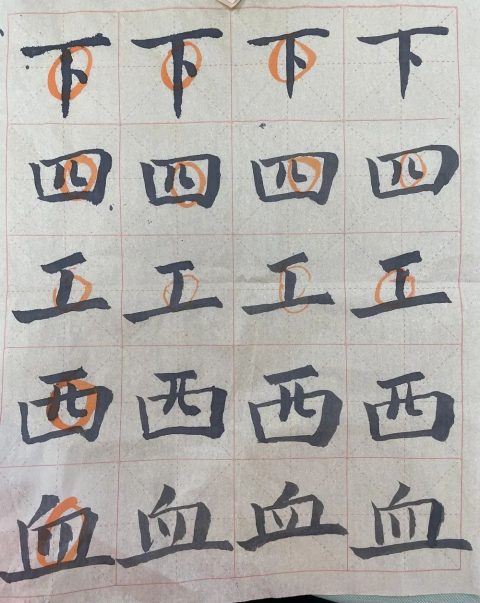 下下下下
四四四四
工工工工
西西西西
血血血血